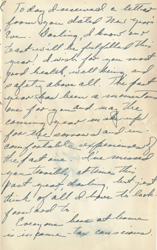 Today I received a letter
from you dated New Year's
Eve. Darling, I know our
toast will be fulfilled this
year. I wish for you most
good health, well being and
safety above all. The past
year has been a momentous
one for you and may the
coming year make up
for the sorrows and un-
comfortable experiences of
the past one. I've missed
you terribly at times this
past year, darling but just
think of all I have to look
forward to.
Everyone here at home
is income tax conscious.